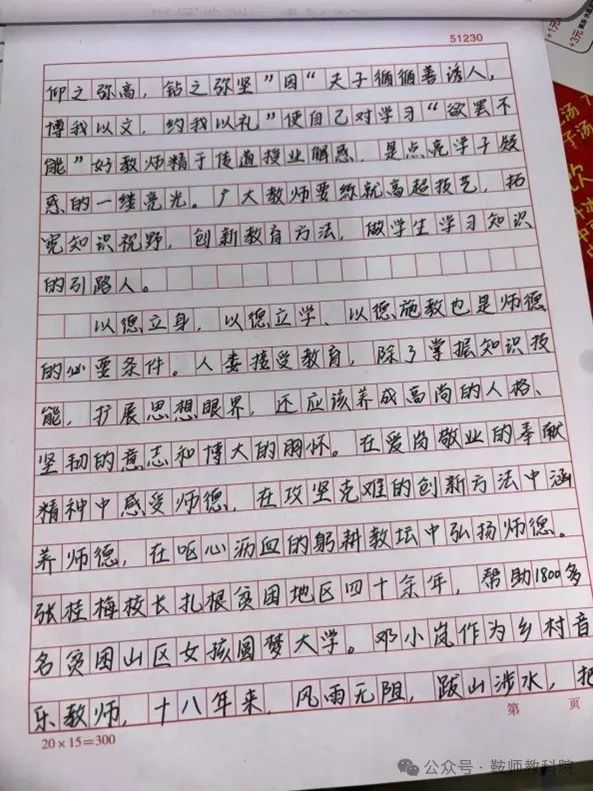 51230
仰之弥高，钻之弥坚”因“夫子循循善诱人，
博我以文，约我以礼”使自己对学习“欲罢不
能”好教师精于传道授业解惑，是点亮学子疑
惑的一缕亮光。广大教师要练就高超技艺，拓
宽知识视野，创新教育方法，做学生学习知识
的引路人。
以德立身，以德立学、以德施教也是师德
的必要条件。人要接受教育，除了掌握知识技
能，扩展思想眼界，还应该养成高尚的人格、
坚韧的意志和博大的胸怀。在爱岗敬业的奉献
精神中感受师德，在攻坚克难的创新方法中涵
养师德，在呕心沥血的躬耕教坛中弘扬师德。
张桂梅校长扎根贫困地区四十余年，帮助1800多
名贫困山区女孩圆梦大学。邓小岚作为乡村音
乐教师，十八年来，风雨无阻，跋山涉水，把
20×15=300
第 页
公众号·鞍师教科院
+1元
+3元